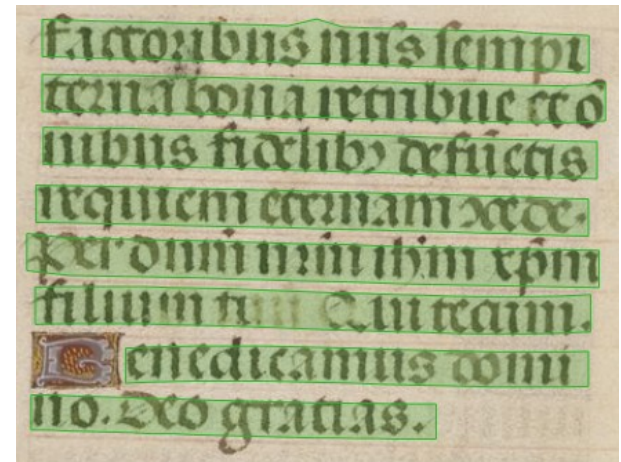 factoribus nr̃is sempi
terna bona retribue et õ
nibus fidelibꝫ defũctis
requiem eternam ↄcede.
Per dnm̃ nrm̃ ihm̃ xp̃m
filium tuũ Qui tecum.
Benedicamus domi
no. Deo gratias.